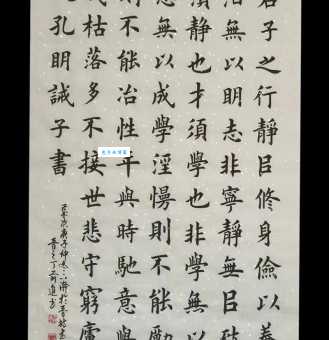 君子之行靜㠯修身儉以養
泊無以明志非寧靜無㠯致
須靜也才須學也非學無
無以成學淫慢則不能勵
則不能冶性年與時馳意與
枯落多不接世悲守窮廬
孔明誡子書